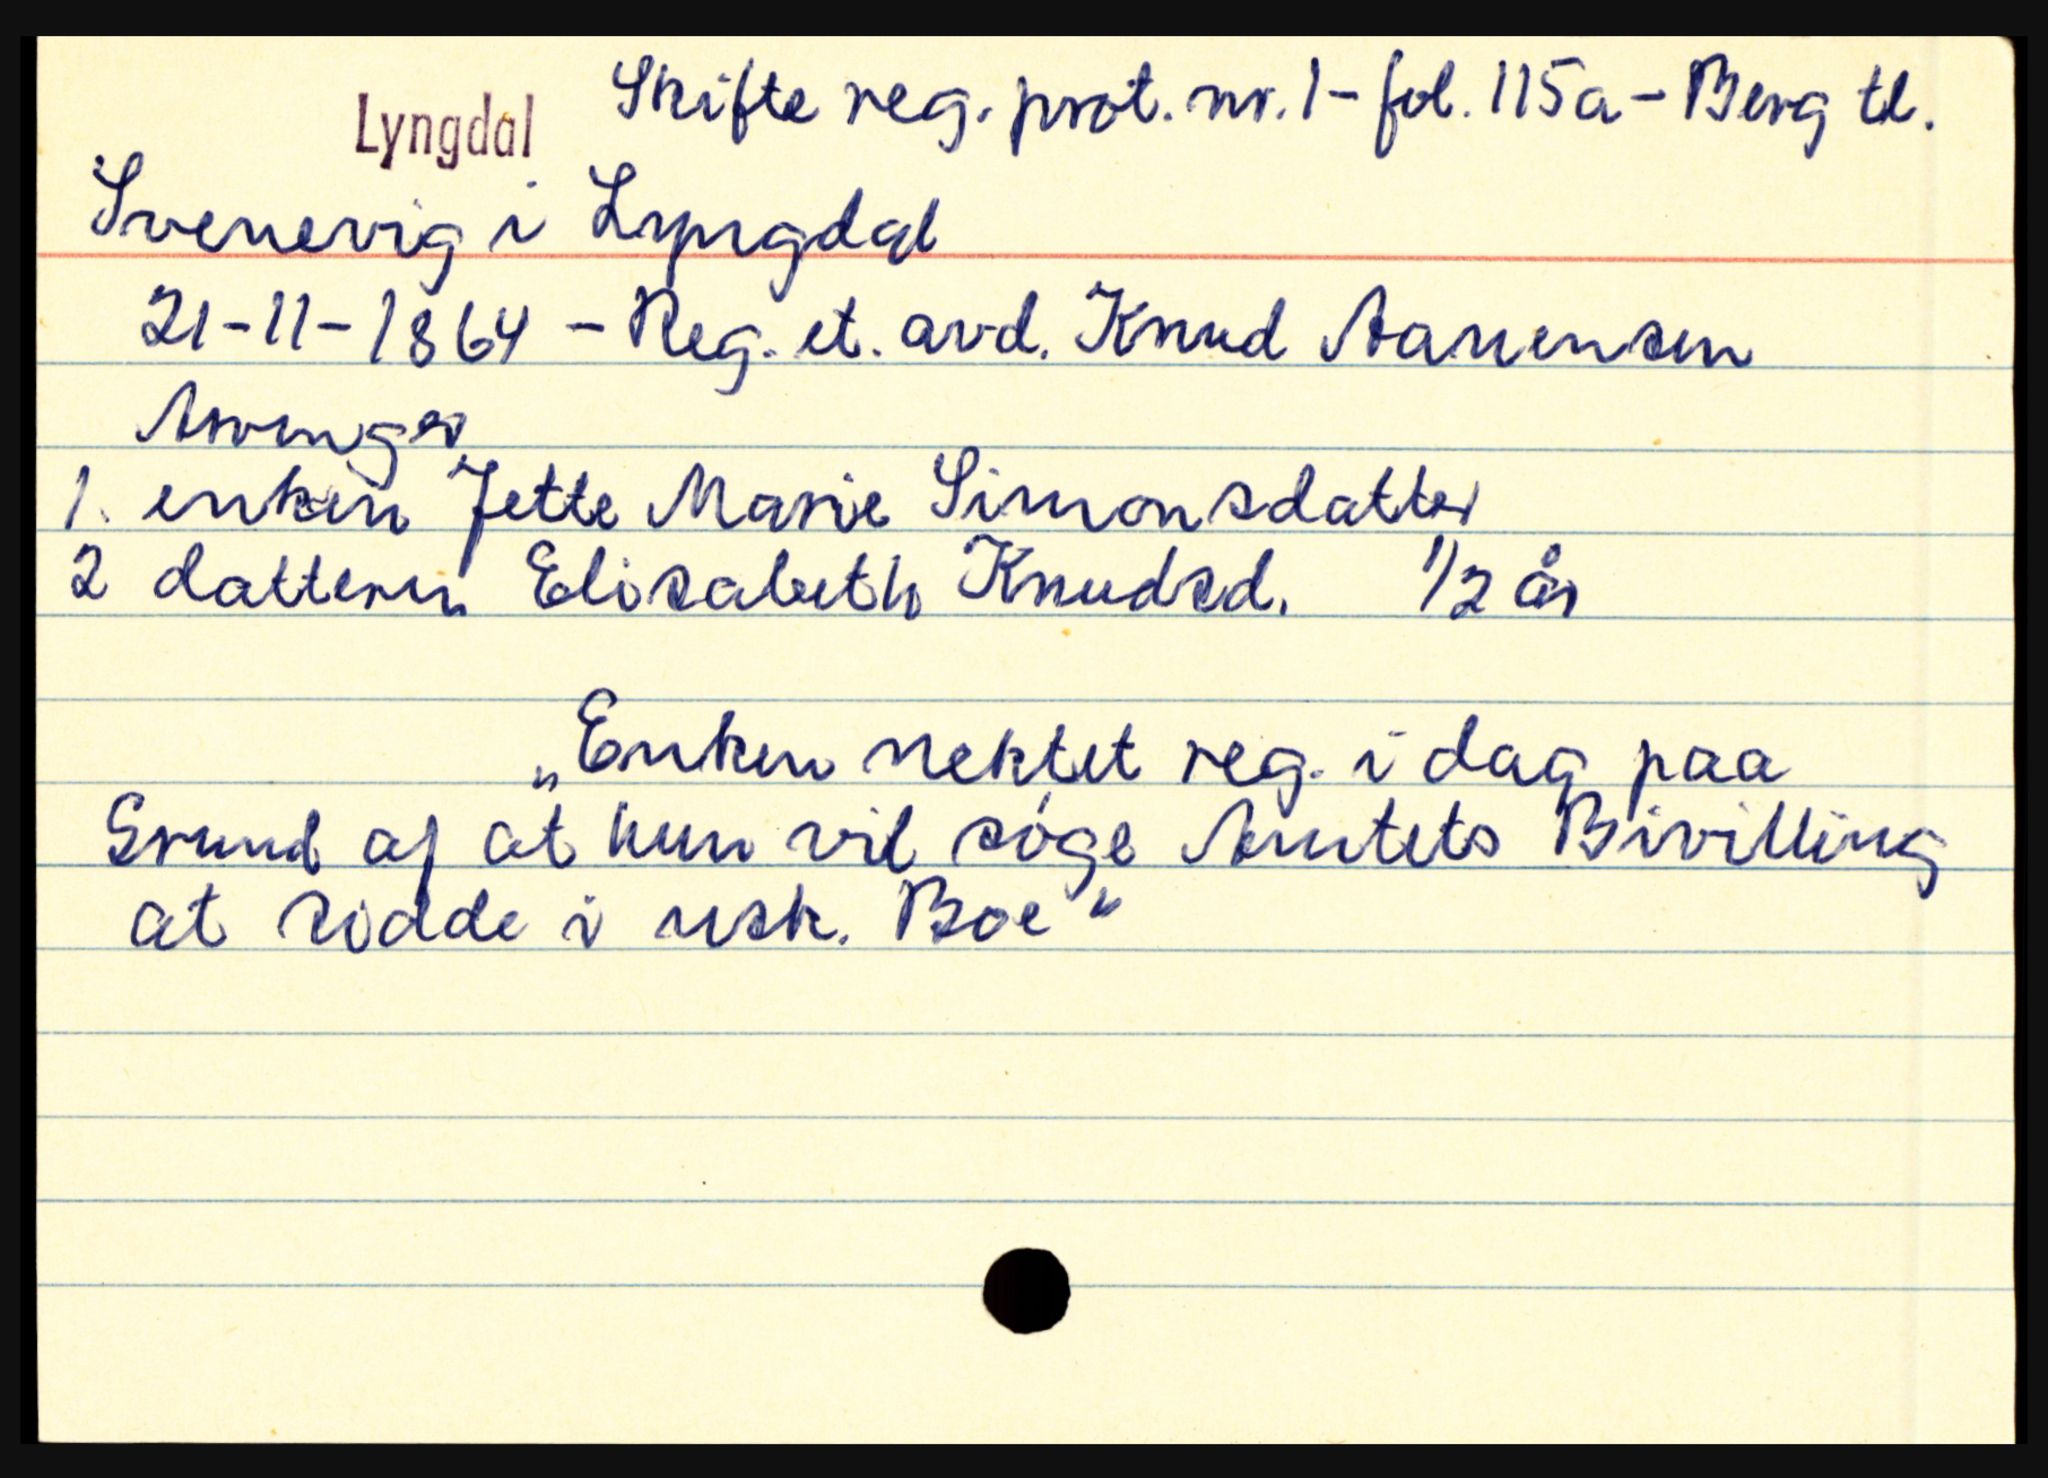 Skifte reg. prot. nr. 1 - fol. 115a - Berg tl.
Lyngdal
Svenevig i Lyngdal
21-11-1864 - Reg. et. avd. Knud Aanensen
Arvinger
1. enken Jette Marie Simonsdatter
2 datteren Elisabeth Knudsd. 1/2 år
„Enken nektet reg. i dag paa
Grund af at hun vil søge Amtets Bivilling
at sidde i usk. Boe"